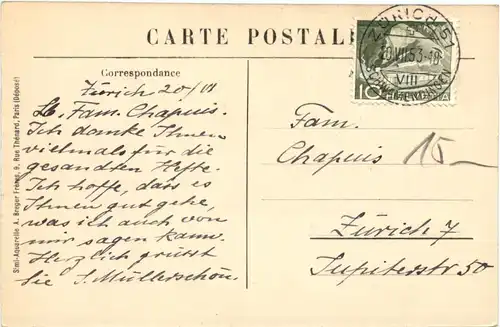 CARTE POSTALE
Correspondance
Zürich 20/VII
Lb. Fam. Chapuis.
Ich danke Ihnen
vielmals für die
gesandten Hefte.
Ich hoffe, dass es
Ihnen gut gehe,
was ich auch von
mir sagen kann.
Herzlich grüsst
Sie S. Müllerschön.
Simi-Aquarelle A. Breger Frères, 9, Rue Thénard, Paris (Déposé)
ZÜRICH 51
20.VII.53-18
VIII
10
Fam.
Chapuis
15.-
Zürich 7
Jupiterstr 50